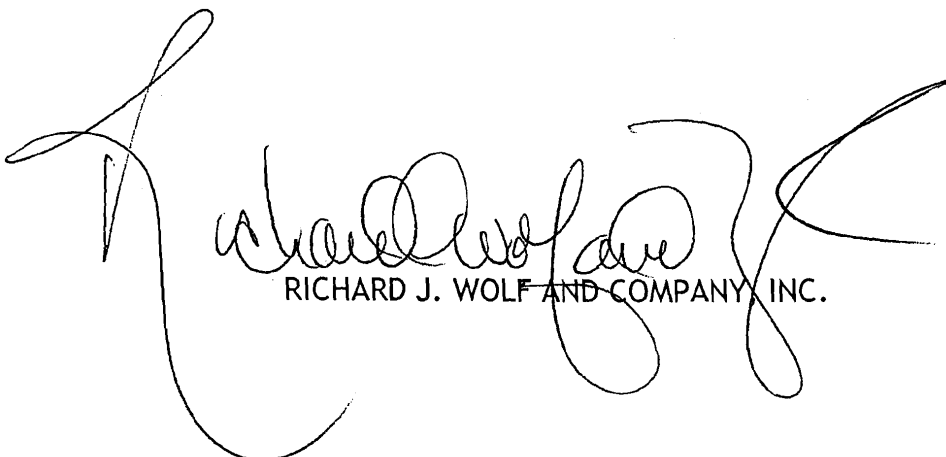 Richard J Wolf and Co
RICHARD J. WOLF AND COMPANY, INC.